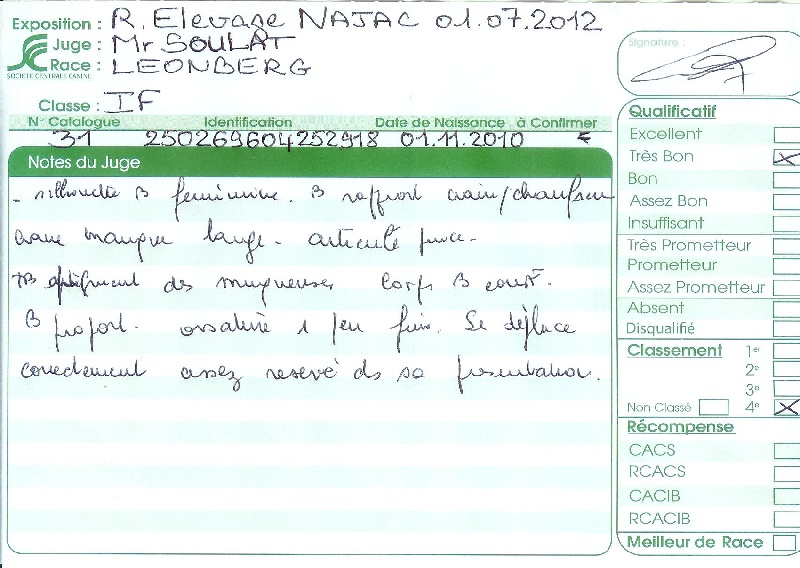 Exposition : R. Elevage NAJAC 01.07.2012
Juge : Mr SOULAT
Race : LEONBERG
SOCIETE CENTRALE CANINE
Classe : IF
N° Catalogue Identification Date de Naissance à Confirmer
31 250269604252918 01.11.2010
Notes du Juge
- silhouette B féminine. B rapport crane/chanfrein
crane manque large - articulé pince -
TB pigment des muqueuses Corps B court.
B proport. ossature 1 peu fine. Se déplace
correctement assez reservé ds sa présentation.
Signature :
Qualificatif
Excellent
Très Bon X
Bon
Assez Bon
Insuffisant
Très Prometteur
Prometeur
Assez Prometteur
Absent
Disqualifié
Classement 1er
2e
3e
Non Classé 4e X
Récompense
CACS
RCACS
CACIB
RCACIB
Meilleur de Race